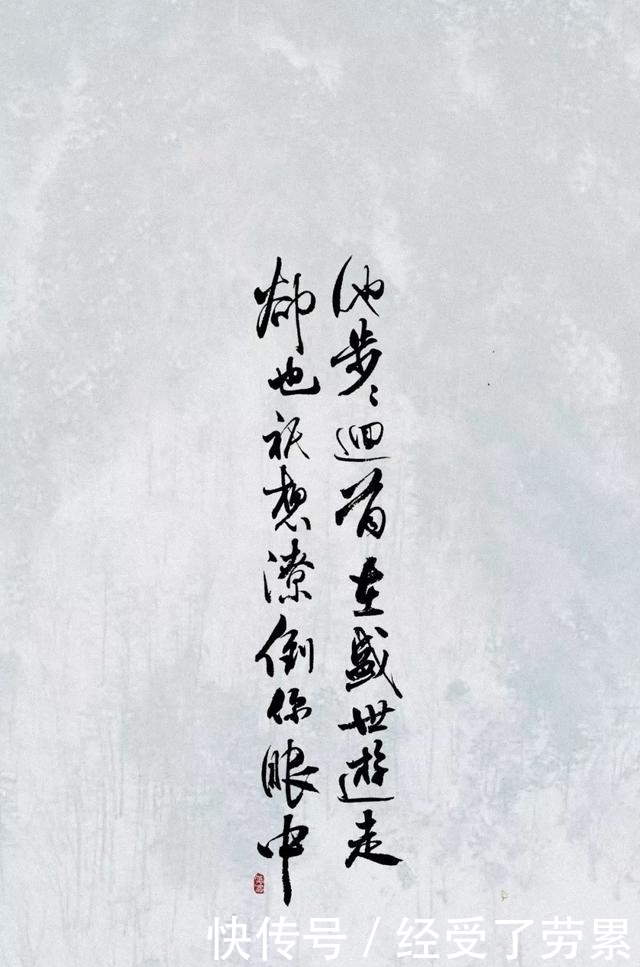 他步步迴首在盛世遊走
卻也祇想潦倒你眼中
快传号/经受了劳累